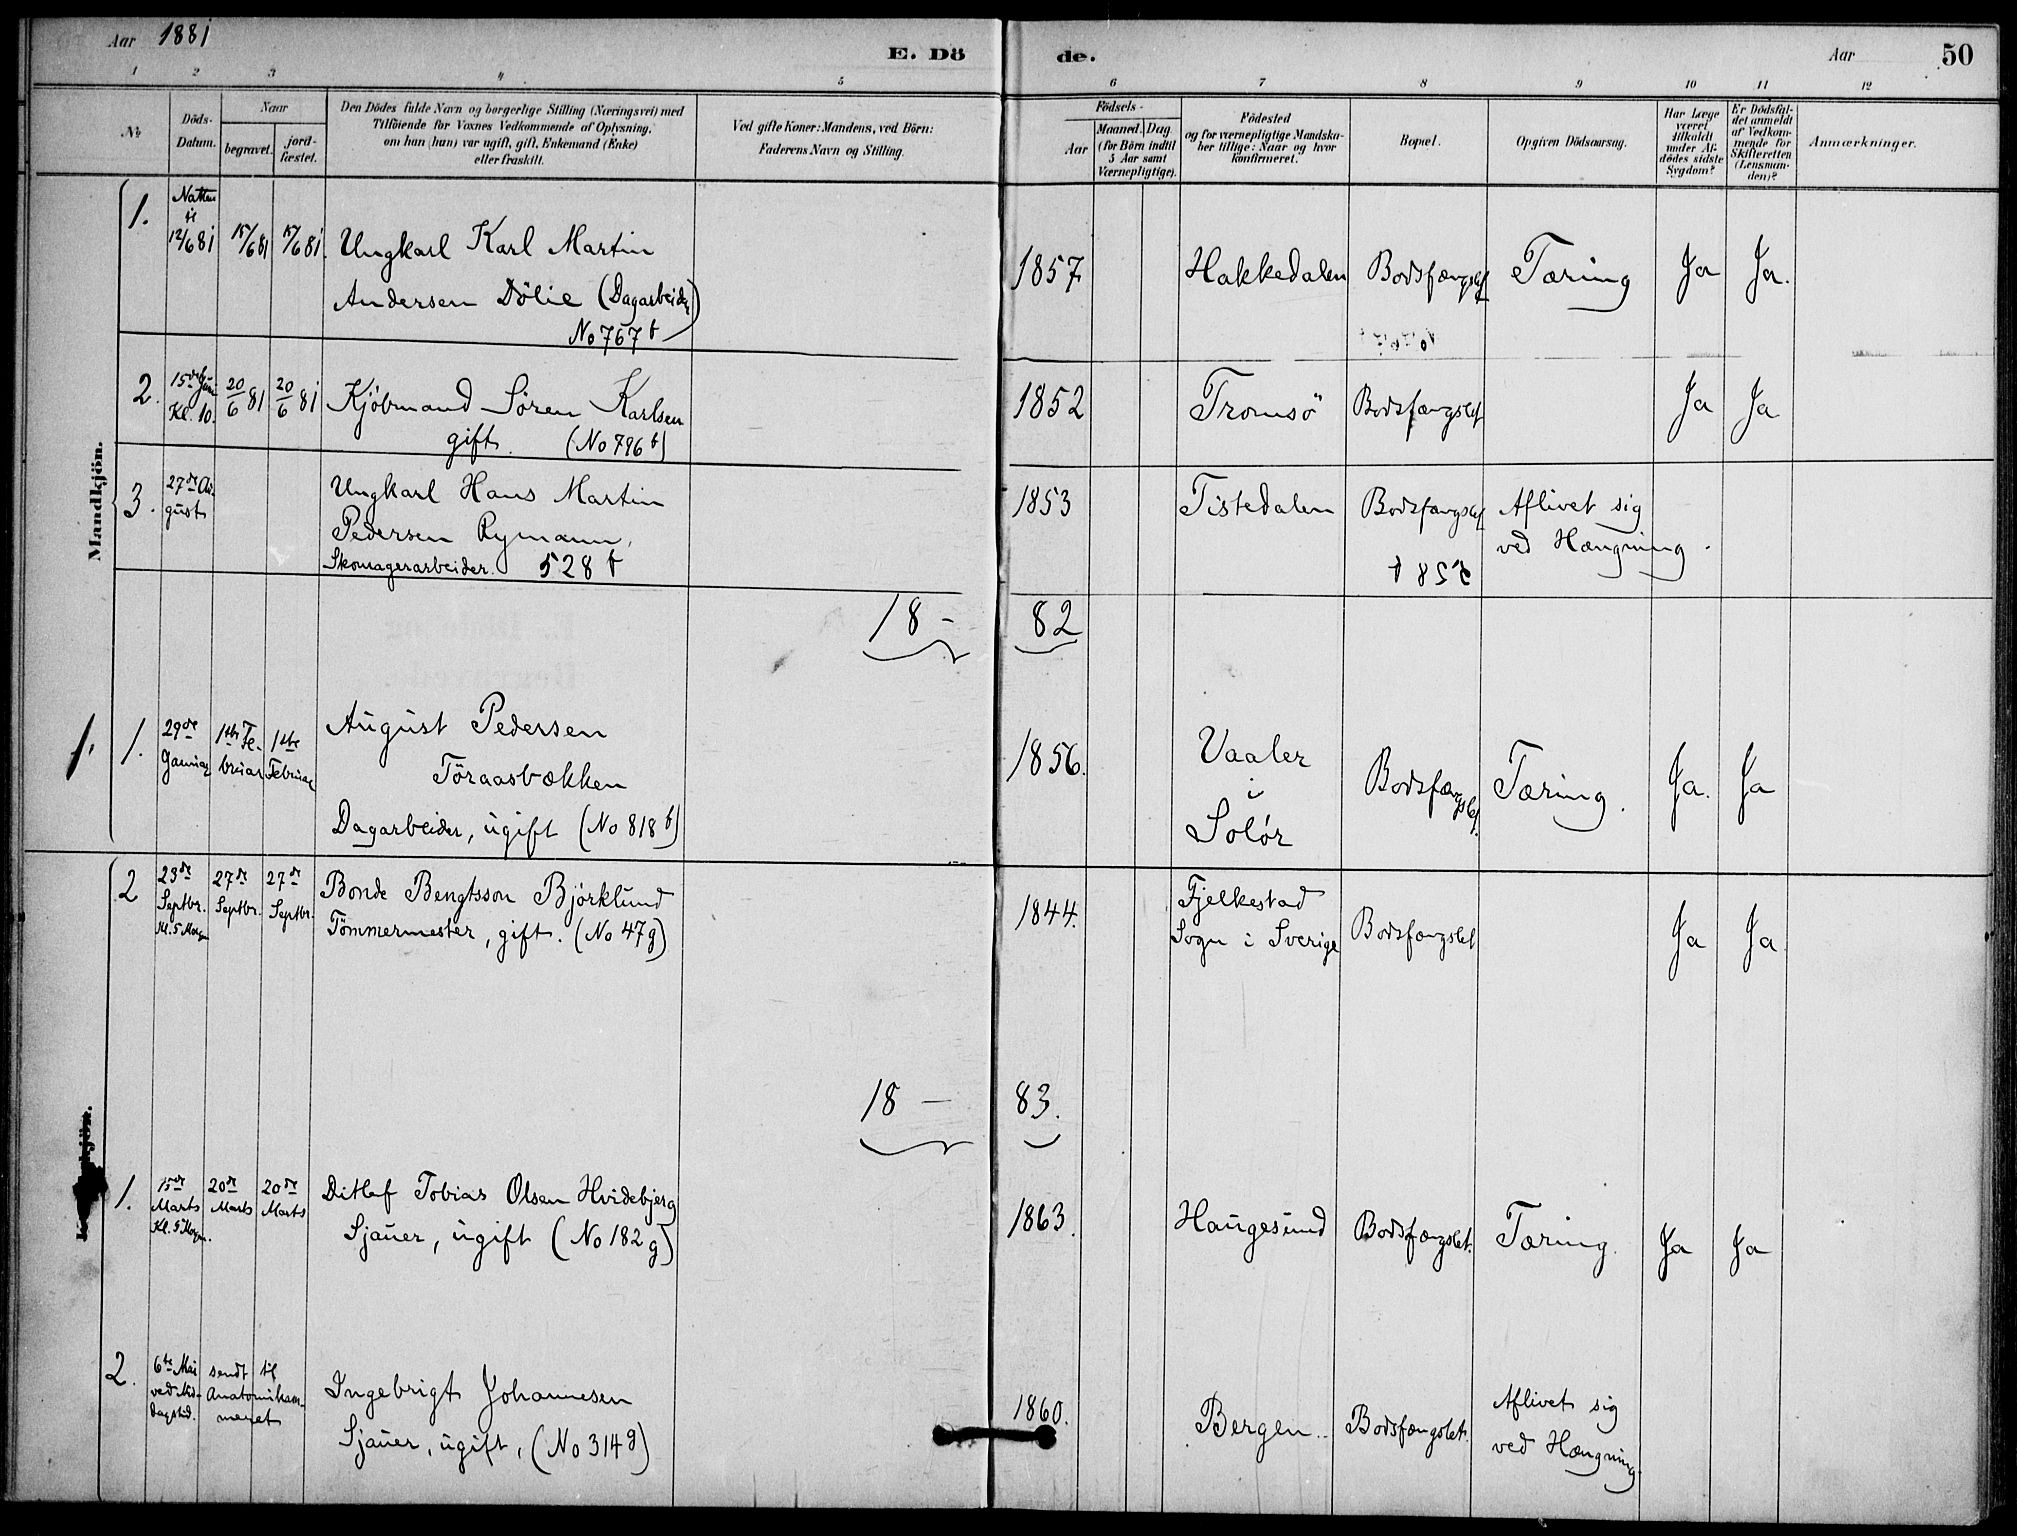 Aar 1881
E. Döde.
Aar
50
1 2 3 4 5 6 7 8 9 10 11 12
No
Döds-Datum.
Naar
begravet.
jord-fæstet.
Den Dödes fulde Navn og borgerlige Stilling (Næringsvei) med
Tilföiende for Voxnes Vedkommende af Oplysning,
om han (hun) var ugift, gift, Enkemand (Enke)
eller fraskilt.
Ved gifte Koner: Mandens, ved Börn:
Faderens Navn og Stilling.
Födsels-
Aar
Maaned. Dag.
(for Börn indtil
5 Aar samt
Værnepligtige).
Födested
og for værnepligtige Mandska-
ber tillige: Naar og hvor
konfirmeret.
Bopæl.
Opgiven Dödsaarsag.
Har Læge
været
tilkaldt
under Af-
dödes sidste
Sygdom?
Er Dödsfal-
det anmeldt
af Vedkom-
mende for
Skifteretten
(Lensman-
den)?
Anmærkninger.
Mandkjön.
1.
Natten
til
12/6 81
15/6 81
15/6 81.
Ungkarl Karl Martin
Andersen Dölie (Dagarbeider)
No 767 b
1857
Hakkedalen
Bodsfængslet
Tæring
Ja
Ja.
2.
15de Juni
Kl. 10.
20/6 81
20/6 81
Kjöbmand Sören Karlsen
gift. (No 796 b)
1852
Tromsö
Bodsfængslet
Ja
Ja
3.
27de Au-
gust
Ungkarl Hans Martin
Pedersen Rymann,
Skomagerarbeider. 528 b
1853
Tistedalen
Bodsfængslet
Aflivet sig
ved Hængning.
18 - 82
1.
1.
29de
Januar
1ste Fe-
bruar
1ste
Februar
August Pedersen
Töraasbækken
Dagarbeider, ugift (No 818 b)
1856.
Vaaler
i
Solör
Bodsfængslet.
Tæring.
Ja.
Ja
2
23de
Septbr.
Kl. 5 Morgen
27de
Septbr.
27de
Septbr.
Bonde Bengtsson Björklund
Tömmermester, gift. (No 47 g)
1844.
Fjelkestad
Sogn i Sverige
Bodsfængslet
Ja
Ja
18 - 83.
kjön.
1.
15de
Marts
Kl. 5 Morgn.
20de
Marts
20de
Marts
Ditlef Tobias Olsen Hvidebjerg
Sjauer, ugift (No 182 g)
1863.
Haugesund
Bodsfængslet.
Tæring.
Ja
Ja
2.
6te Mai
ved Mid-
dagstid.
sendt til
Anatomikam-
meret
Ingebrigt Johannesen
Sjauer, ugift, (No 314 g)
1860.
Bergen.
Bodsfængslet.
Aflivet sig
ved Hængning.